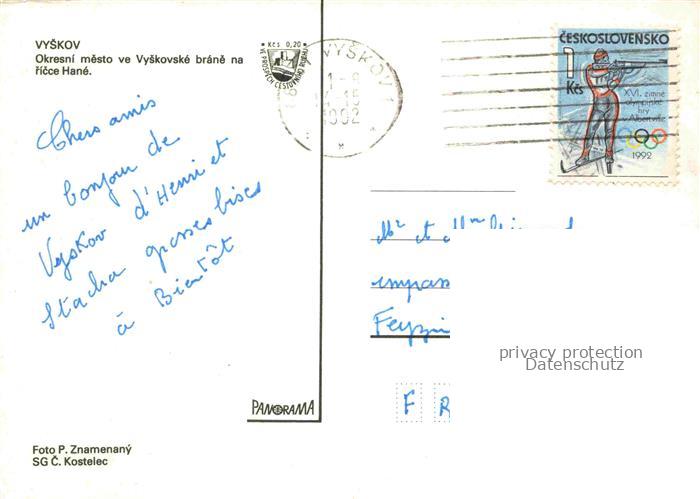 VYŠKOV
Okresní město ve Vyškovské bráně na
říčce Hané.
Kčs 0,20
VE PROSPĚCH CESTOVNÍHO RUCHU
VYŠKOV 1
1992
ČESKOSLOVENSKO
1
Kčs
XVI. zimné
olympijské
hry
Albertville
1992
Chers amis
un bonjour de
Vyskov d'Henri et
Stacha grosses bises
à Bientôt
Mr et Mme
impas
Feyzin
F R
privacy protection
Datenschutz
PANORAMA
Foto P. Znamenaný
SG Č. Kostelec